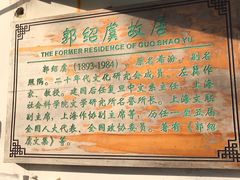 郭绍虞故居
THE FORMER RESIDENCE OF GUO SHAO YU
郭绍虞 (1893-1984)，原名希汾，别名
照隅。二十年代文化研究会成员，左翼作
家、教授。建国后任复旦中文系主任，上海
社会科学院文学研究所名誉所长，上海文联
副主席，上海作协副主席等，为任一至五届
全国人大代表、全国政协委员。著有《郭绍
虞文集》等。